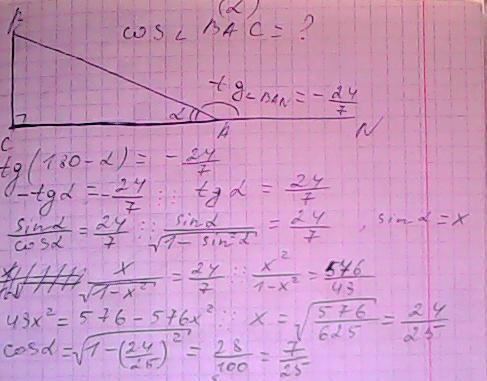 (α)
cos ∠ BAC = ?
B
tg∠BAN = - 24/7
α
C A N
tg(180-α) = - 24/7
-tgα = - 24/7 ::: tgα = 24/7
sinα/cosα = 24/7 ::: sinα/√(1-sin²α) = 24/7 , sinα = x
x/√(1-x²) = 24/7 ::: x²/(1-x²) = 576/49
49x² = 576 - 576x² ::: x = √(576/625) = 24/25
cosα = √(1-(24/25)²) = 28/100 = 7/25